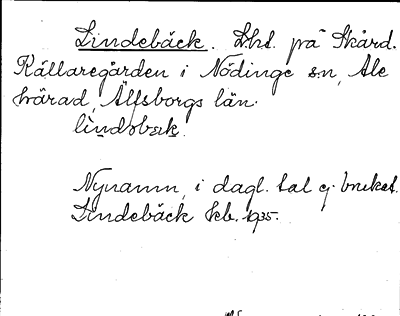 Lindebäck. Lht. på Skård.
Källaregården i Nödinge sn, Ale
härad, Älfsborgs län.
lìndəbæk.
Nynamn, i dagl. tal ej brukat.
Lindebäck kb. 1935.